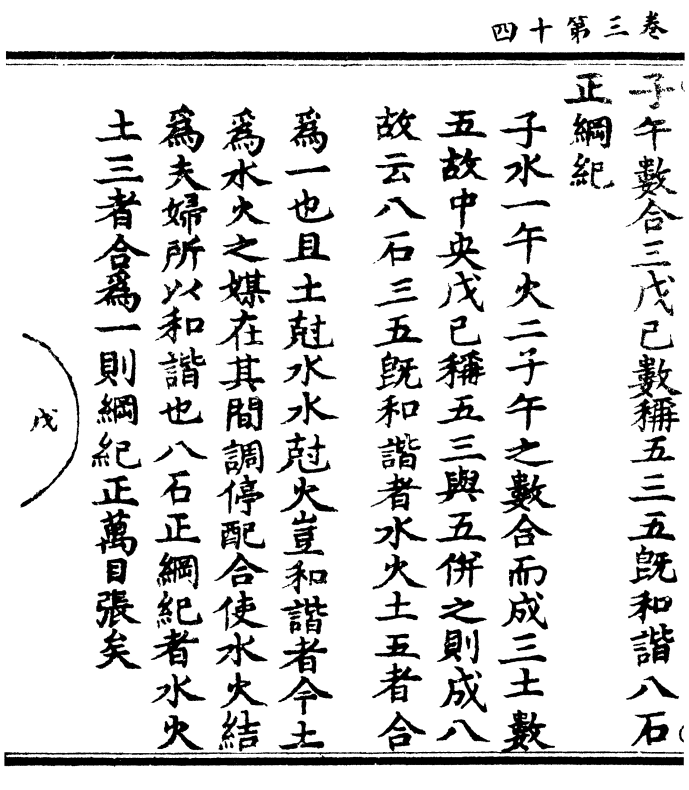 卷三第十四
子午數合三戊己數稱五三五旣和諧八石
正綱紀
子水一午火二子午之數合而成三土數
五故中央戊己稱五三與五併之則成八
故云八石三五旣和諧者水火土五者合
爲一也且土尅水水尅火豈和諧者今土
爲水火之媒在其間調停配合使水火結
爲夫婦所以和諧也八石正綱紀者水火
土三者合爲一則綱紀正萬目張矣
戊